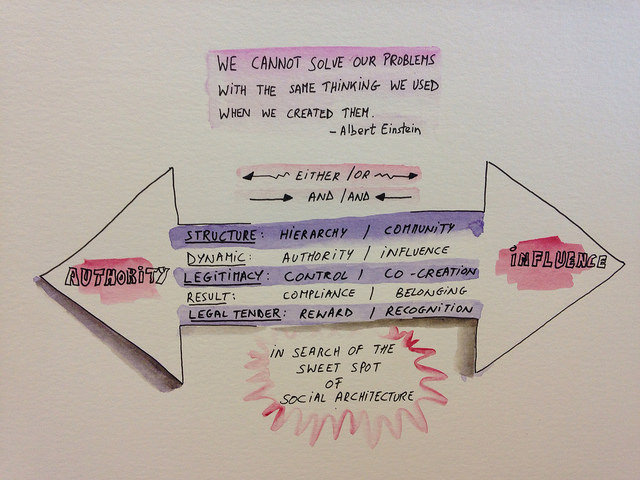 WE CANNOT SOLVE OUR PROBLEMS
WITH THE SAME THINKING WE USED
WHEN WE CREATED THEM.
- Albert Einstein
EITHER / OR
AND / AND
STRUCTURE: HIERARCHY / COMMUNITY
DYNAMIC: AUTHORITY / INFLUENCE
LEGITIMACY: CONTROL / CO-CREATION
RESULT: COMPLIANCE / BELONGING
LEGAL TENDER: REWARD / RECOGNITION
AUTHORITY
INFLUENCE
IN SEARCH OF THE
SWEET SPOT
OF
SOCIAL ARCHITECTURE